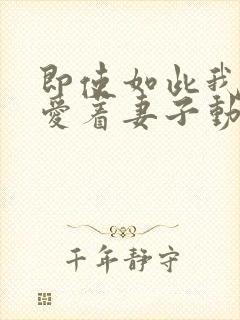 即使如此我
爱着妻子動
千年静守